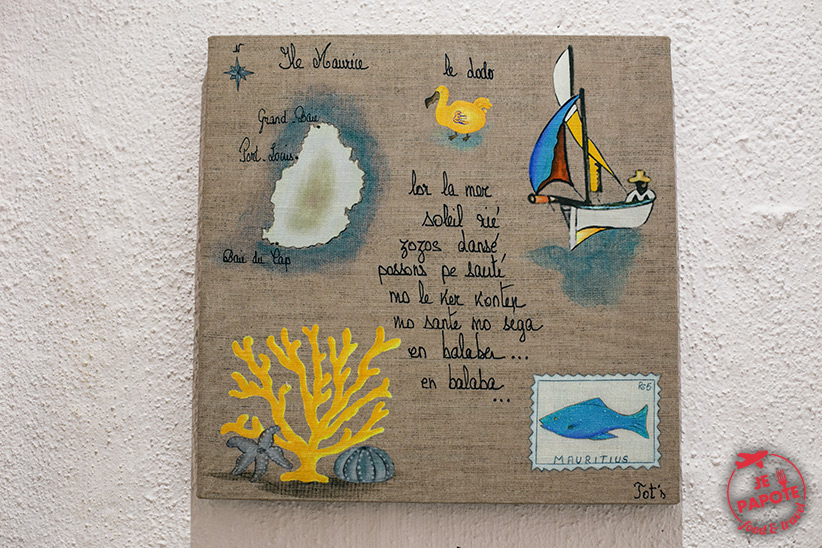 N
Ile Maurice
le dodo
Grand-Baie
Port-Louis.
Baie du Cap
lor la mer
soleil rié
zozos dansé
possons pe sauté
mo le ker konten
mo sante mo sega
en balaber ...
en balaba
...
RS5
MAURITIUS
Tot's
JE
PAPOTE
food & travel